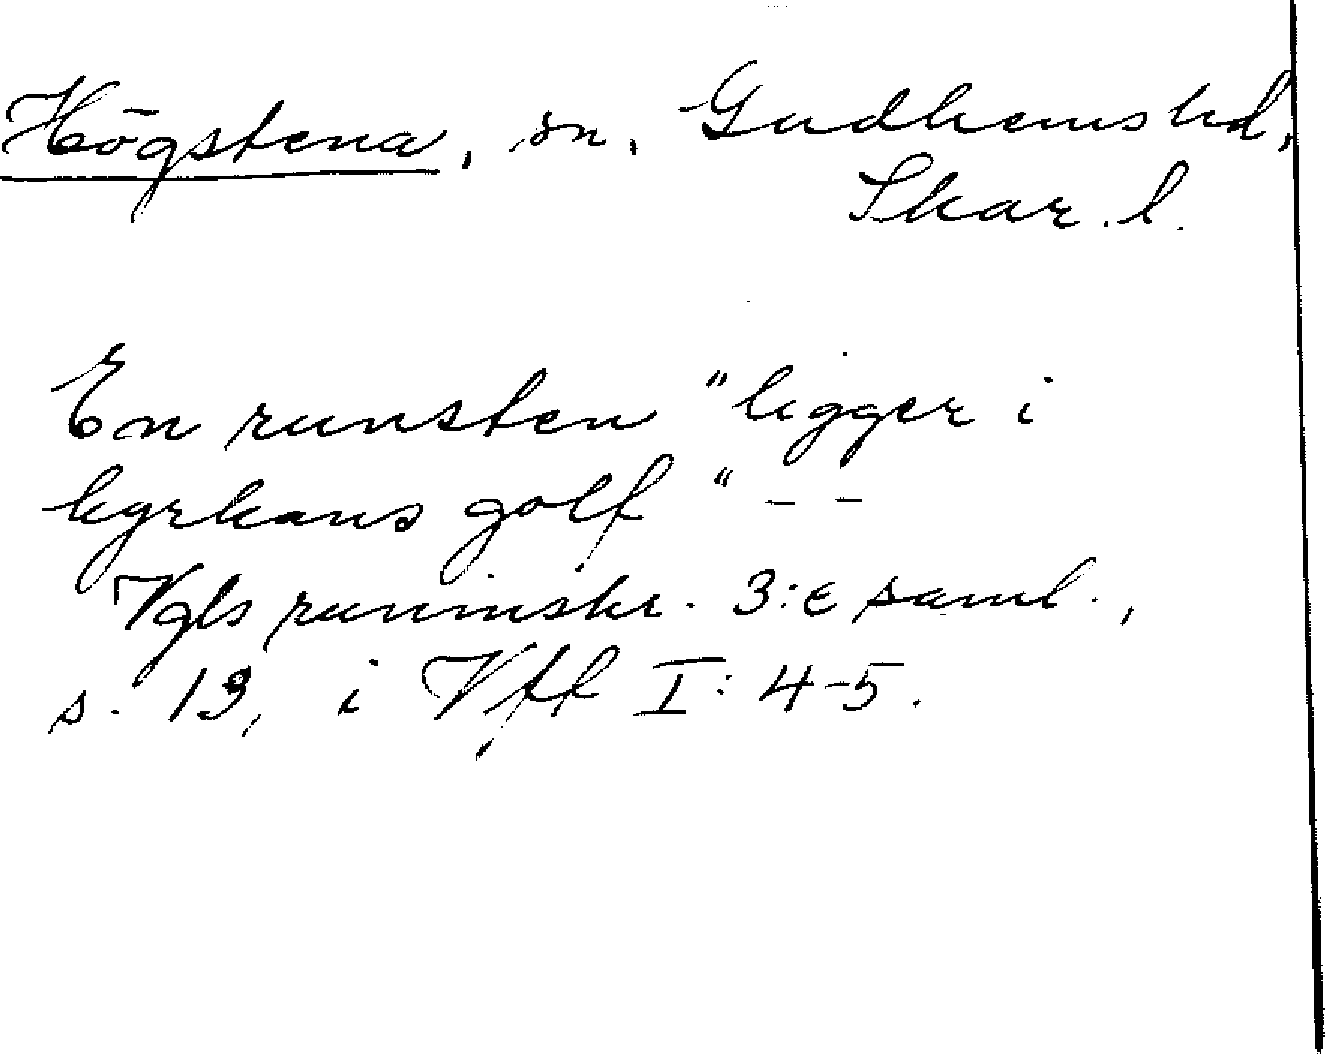 Högstena, sn, Gudhems hd,
Skar. l.
En runsten "ligger i
kyrkans golf" - -
Vgls runinskr. 3:e saml.,
s. 13, i Vff I: 4-5.